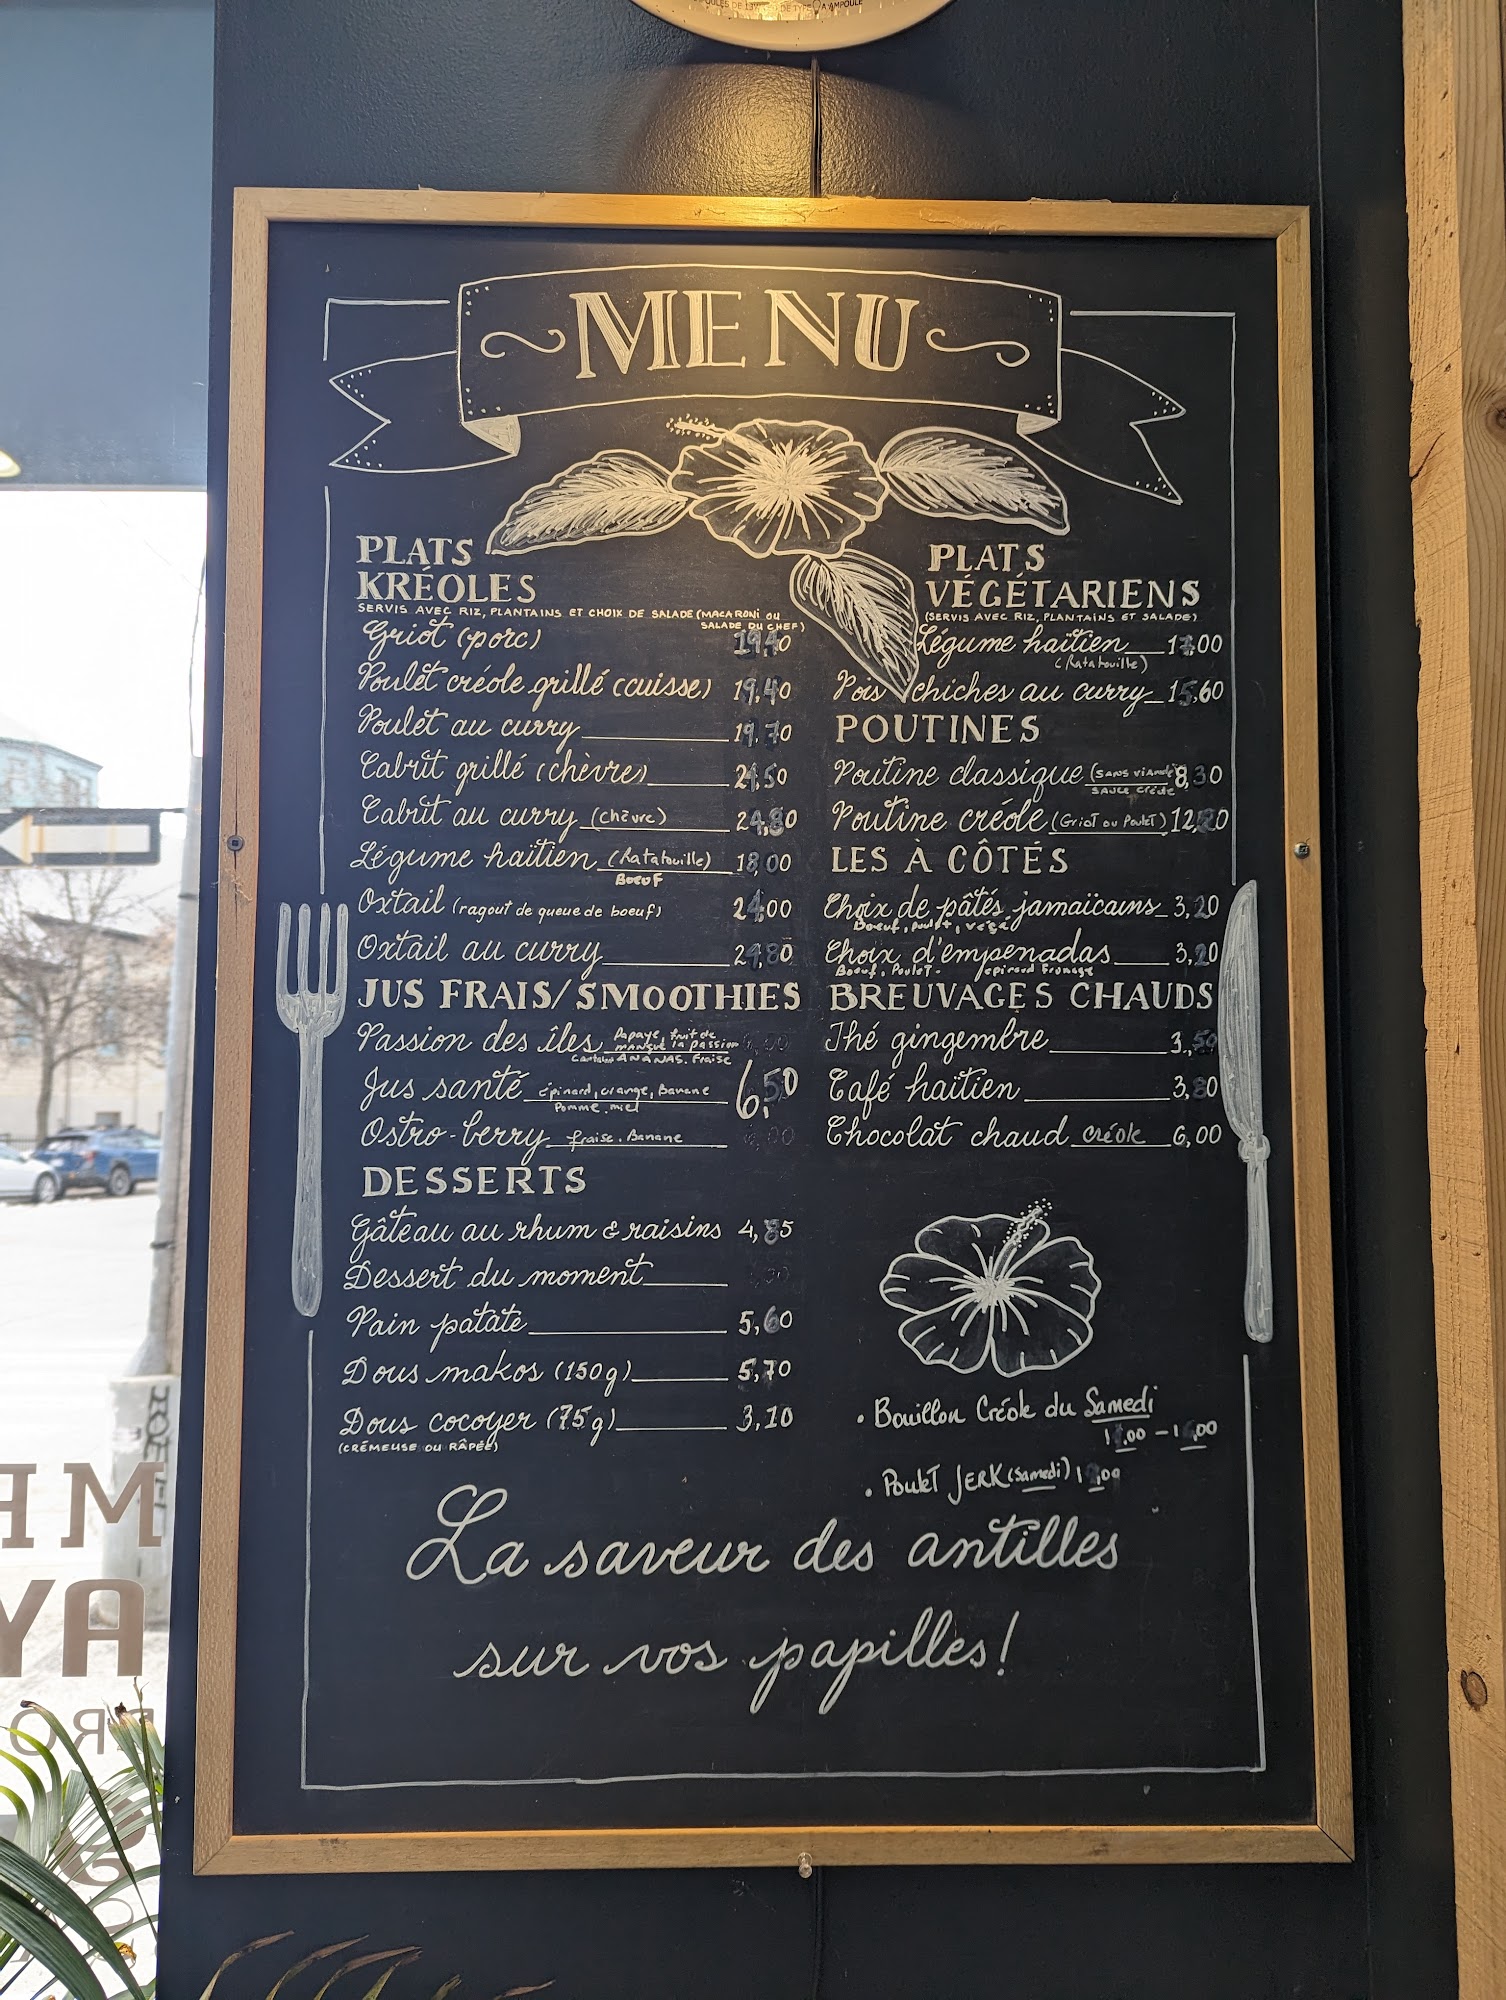 MENU
PLATS
KRÉOLES
SERVIS AVEC RIZ, PLANTAINS ET CHOIX DE SALADE (MACARONI OU
SALADE DU CHEF)
Griot (porc) 19,40
Poulet créole grillé (cuisse) 19,40
Poulet au curry 19,70
Cabrit grillé (chèvre) 24,50
Cabrit au curry (chèvre) 24,80
Légume haïtien (Ratatouille) 18,00
Boeuf
Oxtail (ragout de queue de boeuf) 24,00
Oxtail au curry 24,80
JUS FRAIS/SMOOTHIES
Passion des îles Papaye, fruit de
mangue la passion
Cantaloup ANANAS. Fraise
Jus santé épinard, orange, Banane 6,50
Pomme, miel
Ostro-berry fraise, Banane
DESSERTS
Gâteau au rhum & raisins 4,85
Dessert du moment
Pain patate 5,60
Dous makos (150g) 5,70
Dous cocoyer (75g) 3,10
(CRÉMEUSE OU RÂPÉE)
PLATS
VÉGÉTARIENS
(SERVIS AVEC RIZ, PLANTAINS ET SALADE)
Légume haïtien
(Ratatouille)
Pois chiches au curry 15,60
POUTINES
Poutine classique (SANS VIANDE) 8,30
SAUCE Créole
Poutine créole (Griot ou Poulet)
LES À CÔTÉS
Choix de pâtés jamaïcains 3,20
Boeuf, poulet, végé
Choix d'empenadas 3,20
Boeuf, Poulet. épinard Fromage
BREUVAGES CHAUDS
Thé gingembre 3,50
Café haïtien 3,80
Chocolat chaud créole 6,00
• Bouillon Créole du Samedi
• Poulet JERK (Samedi)
La saveur des antilles
sur vos papilles!